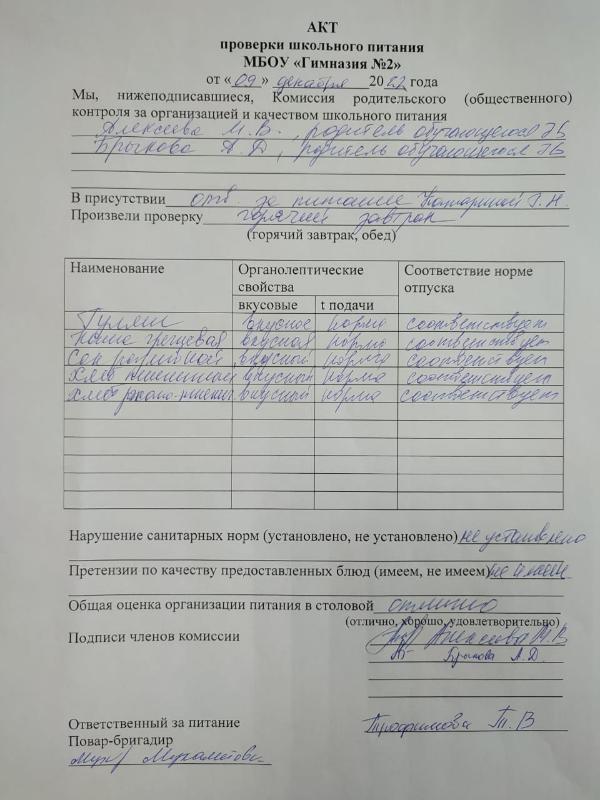 АКТ
проверки школьного питания
МБОУ «Гимназия №2»
от «09» декабря 2022 года
Мы, нижеподписавшиеся, Комиссия родительского (общественного)
контроля за организацией и качеством школьного питания
Алексеева М.В., родитель обучающегося
Брыкова А.Д, родитель обучающегося
В присутствии отв. за питание
Произвели проверку горячий завтрак
(горячий завтрак, обед)
Наименование Органолептические свойства Соответствие норме отпуска
вкусовые t подачи
Гуляш вкусное норма соответствует
Каша гречевая вкусная норма соответствует
Сок вкусной норма соответствует
Хлеб пшеничный вкусный норма соответствует
Хлеб вкусный норма соответствует
Нарушение санитарных норм (установлено, не установлено) не установлено
Претензии по качеству предоставленных блюд (имеем, не имеем) не имеем
Общая оценка организации питания в столовой отлично
(отлично, хорошо, удовлетворительно)
Подписи членов комиссии Алексеева М.В
Брыкова А.Д.
Ответственный за питание Трофимова Т.В
Повар-бригадир